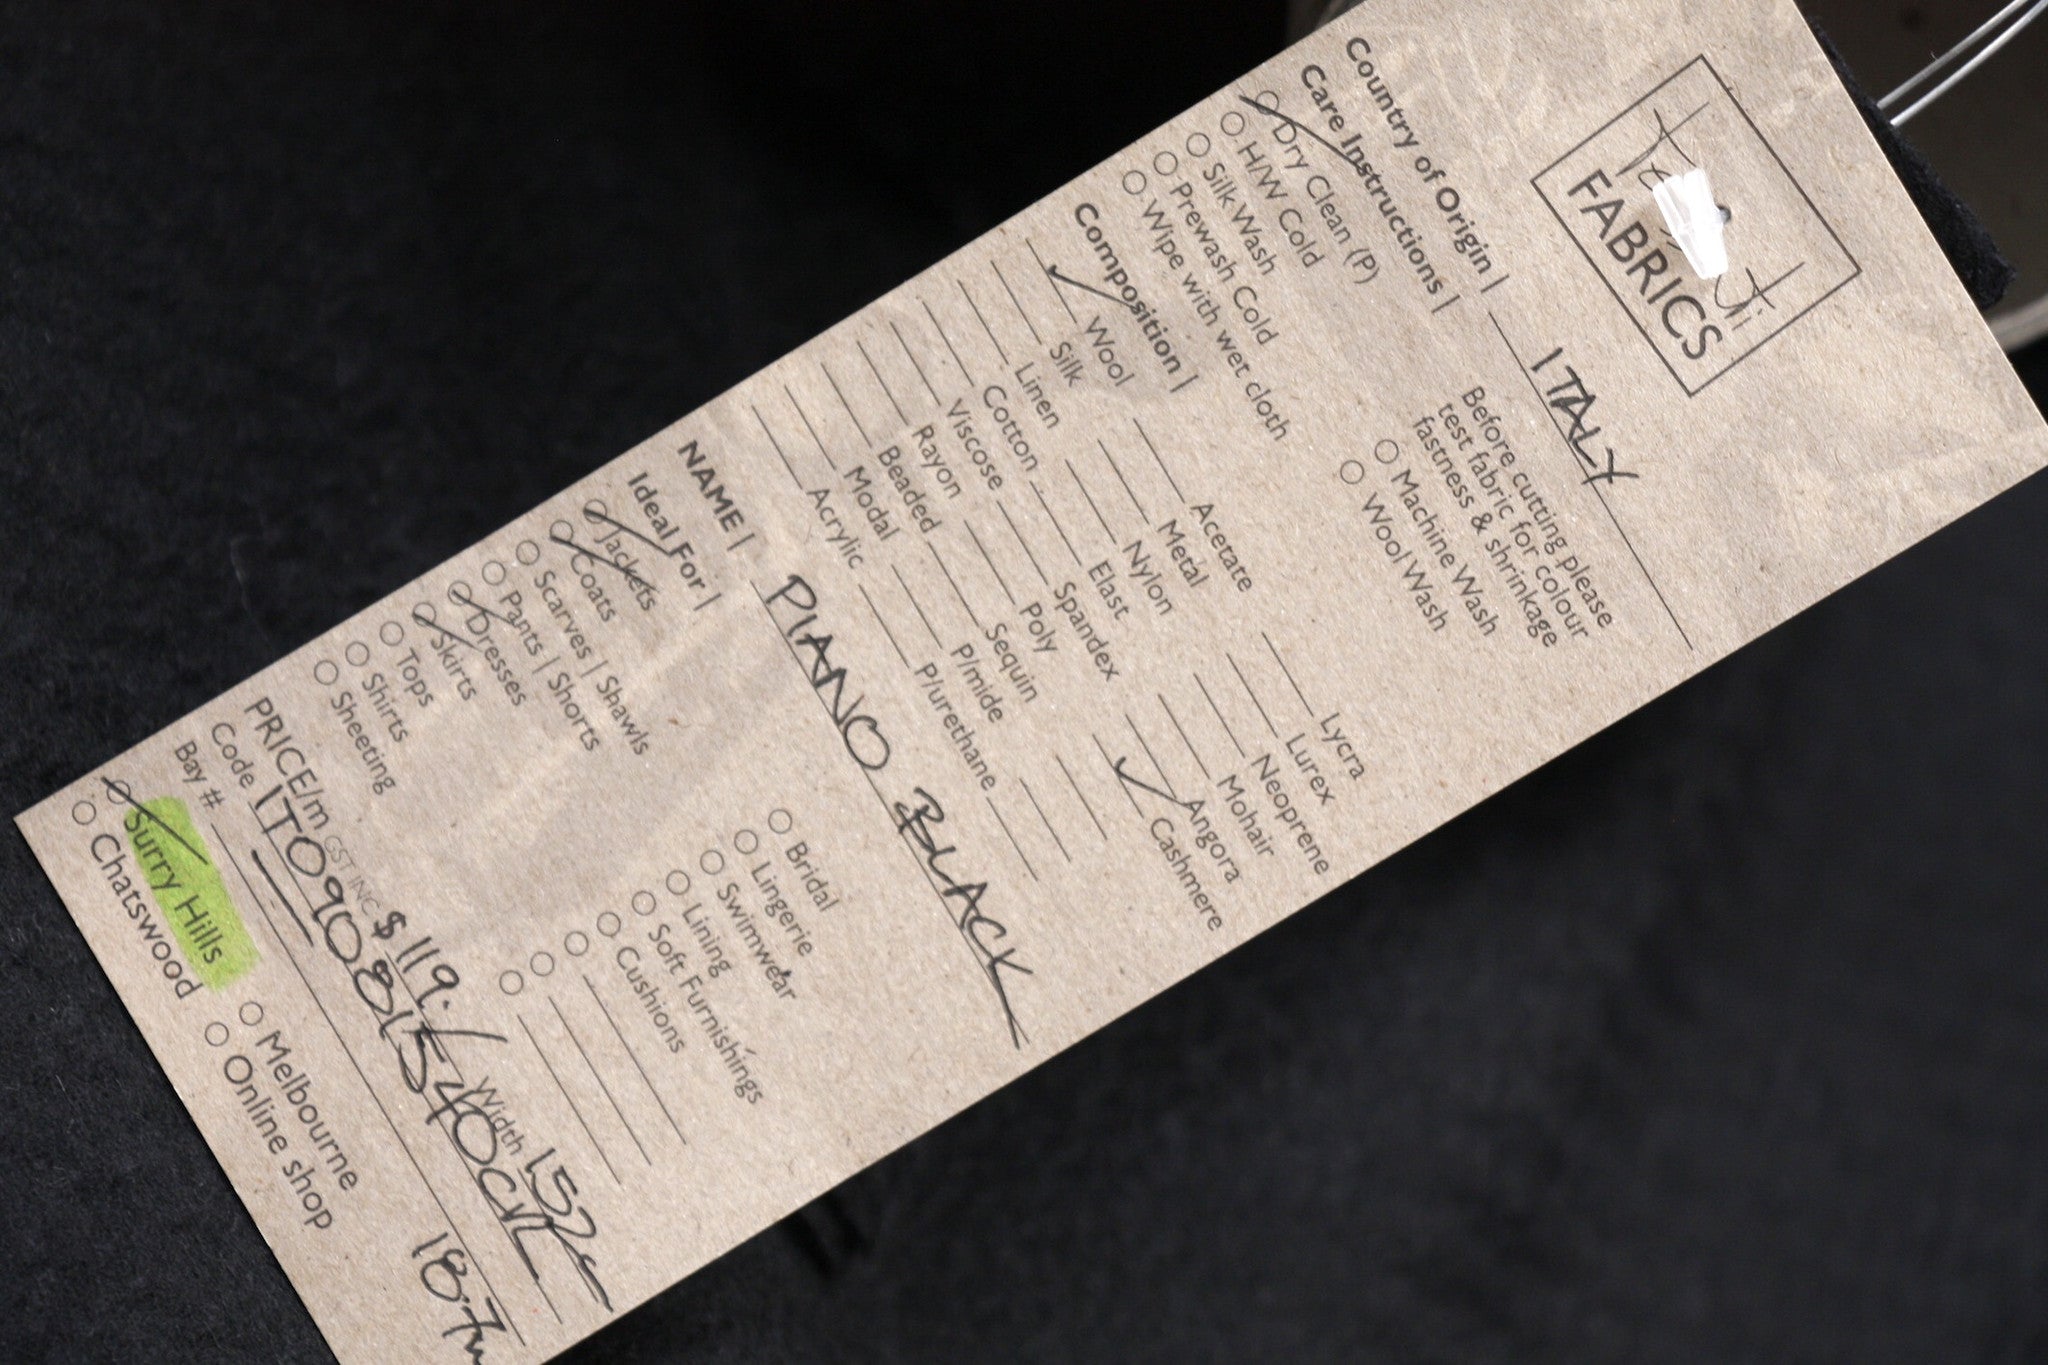 FABRICS
Country of Origin | ITALY
Care Instructions |
Dry Clean (P)
H/W Cold
Silk Wash
Prewash Cold
Wipe with wet cloth
Before cutting please
test fabric for colour
fastness & shrinkage
Machine Wash
Wool Wash
Composition |
Wool
Silk
Linen
Cotton
Viscose
Rayon
Beaded
Modal
Acrylic
Acetate
Metal
Nylon
Elast
Spandex
Poly
Sequin
P/mide
P/urethane
Lycra
Lurex
Neoprene
Mohair
Angora
Cashmere
NAME | PIANO BLACK
Ideal For |
Jackets
Coats
Scarves | Shawls
Pants | Shorts
Dresses
Skirts
Tops
Shirts
Sheeting
Bridal
Lingerie
Swimwear
Lining
Soft Furnishings
Cushions
PRICE/m GST INC $119./ Width 152
Code ITO90815
Bay # 18.7m
Surry Hills
Chatswood
Melbourne
Online shop